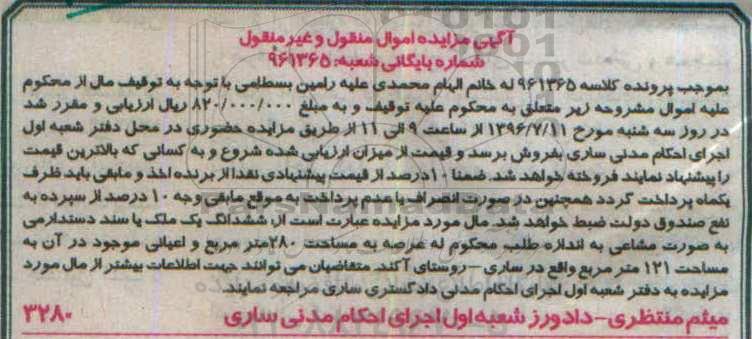 آگهی مزایده اموال منقول و غیر منقول
شماره بایگانی شعبه: ۹۶۱۳۶۵
بموجب پرونده کلاسه ۹۶۱۳۶۵ له خانم الهام محمدی علیه رامین بسطامی با توجه به توقیف مال از محکوم
علیه اموال مشروحه زیر متعلق به محکوم علیه توقیف و به مبلغ ۸۲۰/۰۰۰/۰۰۰ ریال ارزیابی و مقرر شد
در روز سه شنبه مورخ ۱۳۹۶/۷/۱۱ از ساعت ۹ الی ۱۱ از طریق مزایده حضوری در محل دفتر شعبه اول
اجرای احکام مدنی ساری بفروش برسد و قیمت از میزان ارزیابی شده شروع و به کسانی که بالاترین قیمت
را پیشنهاد نمایند فروخته خواهد شد. ضمنا ۱۰ درصد از قیمت پیشنهادی نقدا از برنده اخذ و مابقی باید ظرف
یکماه پرداخت گردد همچنین در صورت انصراف یا عدم پرداخت به موقع مابقی وجه ۱۰ درصد از سپرده به
نفع صندوق دولت ضبط خواهد شد. مال مورد مزایده عبارت است از: ششدانگ یک ملک با سند دستدارمی
به صورت مشاعی به اندازه طلب محکوم له عرصه به مساحت ۲۸۰متر مربع و اعیانی موجود در آن به
مساحت ۱۲۱ متر مربع واقع در ساری – روستای آکند. متقاضیان می توانند جهت اطلاعات بیشتر از مال مورد
مزایده به دفتر شعبه اول اجرای احکام مدنی دادگستری ساری مراجعه نمایند.
میثم منتظری-دادورز شعبه اول اجرای احکام مدنی ساری
۳۲۸۰